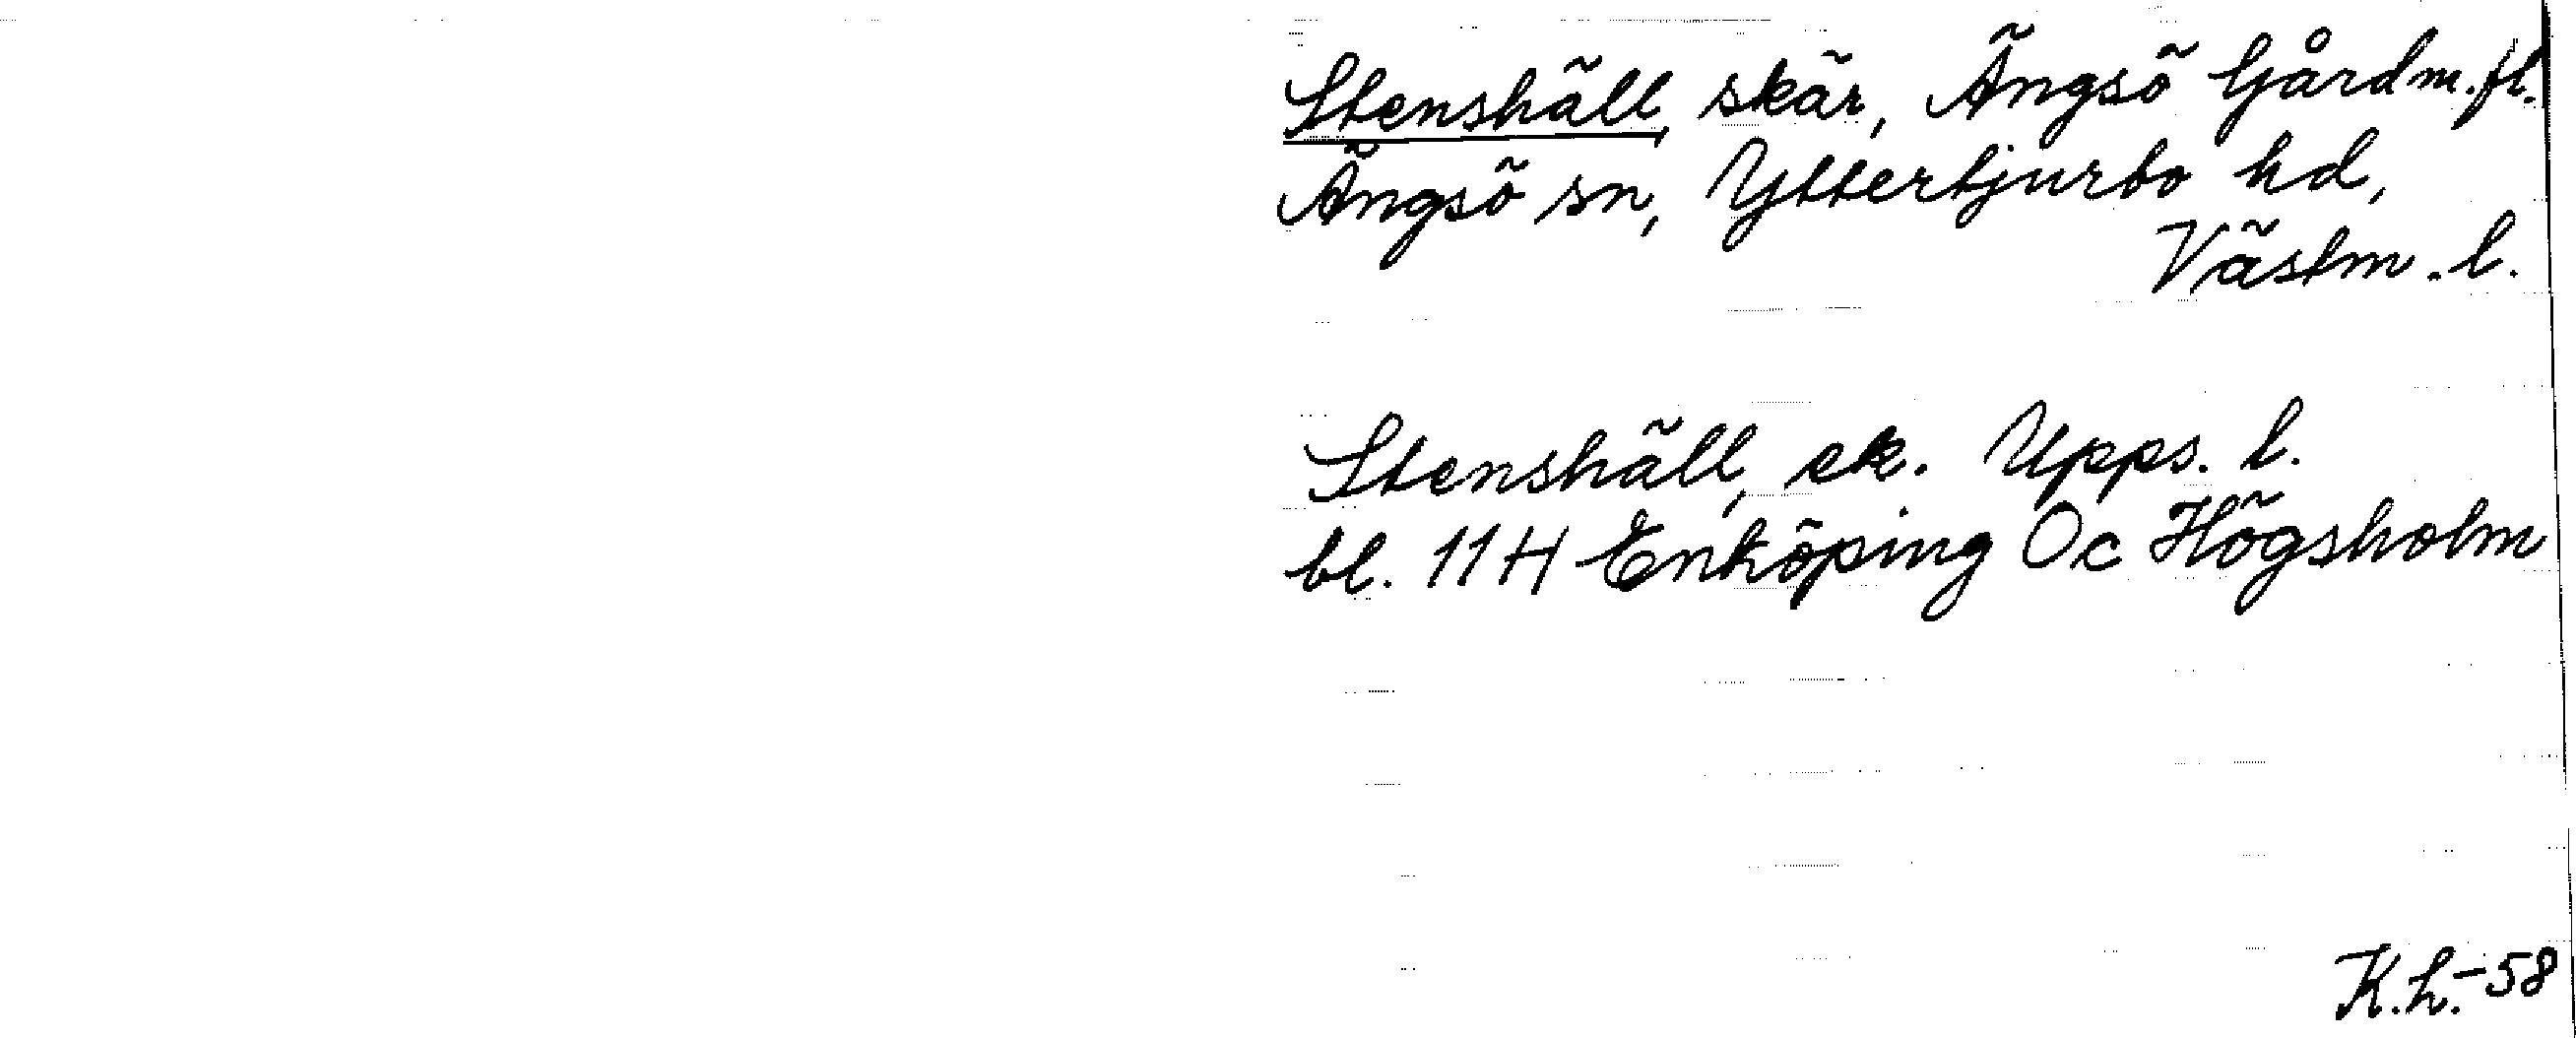 Stenshäll, skär, Ängsö Gård m.fl.
Ängsö sn, Yttertjurbo hd,
Västm. l.
Stenshäll, ek. Upps. l.
bl. 11H Enköping Oc Högsholm
K.h.-58